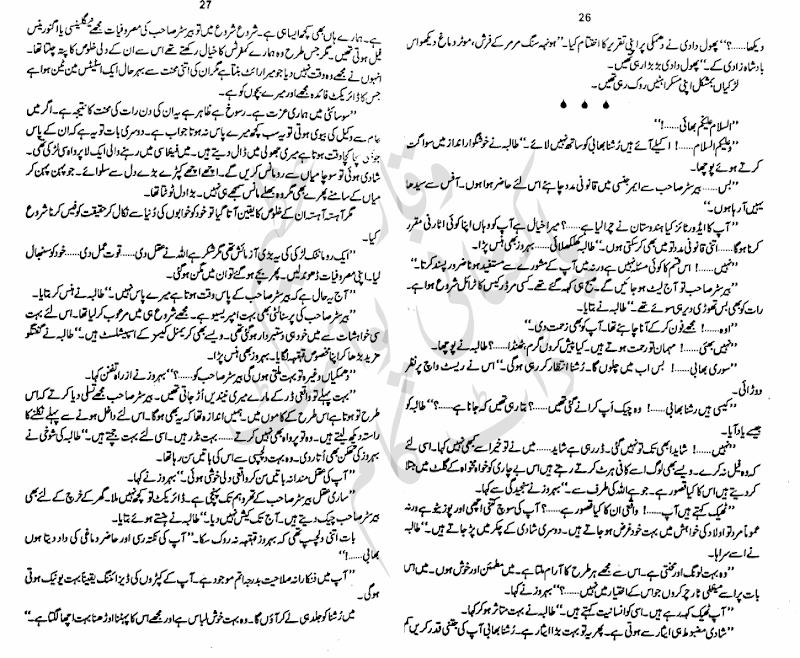 26
دیکھا......؟“ پھول دادی نے دھمکی پر اپنی تقریر کا اختتام کیا۔ ”ہونہہ سنگ مرمر کے فرش، موٹر دماغ دیکھو اس
بادشاہ زادی کے۔“ پھول دادی بڑبڑا رہی تھیں۔
لڑکیاں بمشکل اپنی مسکراہٹیں روک رہی تھیں۔
”السلام علیکم بھائی......!“
”وعلیکم السلام......! اکیلے آئے ہیں رُشنا بھابی کو ساتھ نہیں لائے۔“ طالبہ نے خوشگوار انداز میں سواگت
کرتے ہوئے پوچھا۔
”بس...... بیرسٹر صاحب سے ایمرجنسی میں قانونی مدد چاہئے اس لئے حاضر ہوا ہوں۔ آفس سے سیدھا
یہیں آ رہا ہوں۔“
”آپ کا ایڈورٹائز کیا ہندوستان نے چرا لیا ہے......؟ میرا خیال ہے آپ کو وہاں اپنا کوئی اٹارنی مقرر
کرنا ہوگا...... اتنی قانونی مدد تو میں بھی کر سکتی ہوں۔“ طالبہ کھلکھلائی...... بہروز بھی ہنس پڑا۔
”نہیں......! اس قسم کا کوئی مسئلہ نہیں ہے ورنہ میں آپ کے مشورے سے مستفید ہونا ضرور پسند کرتا۔“
”بیرسٹر صاحب تو آج لیٹ ہو جائیں گے۔ صبح ہی کہہ گئے تھے۔ کسی مرڈر کیس کا ٹرائل شروع ہوا ہے۔
رات کو بھی بس تھوڑی دیر ہی سوئے تھے۔“ طالبہ نے بتایا۔
”اوہ......! مجھے فون کر کے آنا چاہئے تھا۔ آپ کو بھی زحمت دی۔“
”نہیں بھئی......! مہمان تو رحمت ہوتے ہیں۔ کیا پیش کروں گرم، ٹھنڈا......؟ طالبہ نے پوچھا۔
”سوری بھابی......! بس اب میں چلوں گا۔ رُشنا انتظار کر رہی ہوگی۔“ اس نے ریسٹ واچ پر نظر
دوڑائی۔
”کیسی ہیں رشنا بھابی......! وہ چیک اَپ کرانے گئی تھیں......؟ بتا رہی تھیں کہ جانا ہے......؟“ طالبہ کو
جیسے یاد آیا۔
”نہیں......! شاید ابھی تک تو نہیں گئی۔ ڈر رہی ہے شاید...... میں نے تو خیر اسے کبھی نہیں کہا۔ اسی لئے
کہ وہ فیل نہ کرے۔ ویسے بھی لوگ اسے کافی ہرٹ کرتے رہتے ہیں اس بے چاری کو خوامخواہ کے گلٹ میں مبتلا
کر دیتے ہیں اس کا کیا قصور ہے۔ جو ہے اللہ کی طرف سے۔“ بہروز نے سنجیدگی سے کہا۔
”ٹھیک کہتے ہیں آپ......! واقعی ان کا کیا قصور ہے......؟ آپ کی سوچ کتنی اچھی اور پوزیٹو ہے ورنہ
عموماً مرد تو اولاد کی خواہش میں بہت خود غرض ہو جاتے ہیں۔ دوسری شادی کے چکر میں پڑ جاتے ہیں۔“ طالبہ
نے اسے سراہا۔
”وہ بہت لونگ اور محنتی ہے۔ اس سے مجھے ہر طرح کا آرام ملتا ہے۔ میں مطمئن اور خوش ہوں۔ میں اس
بات پر اسے مینٹلی ٹارچر کروں جو اس کے اختیار میں نہیں......؟“ بہروز نے کہا۔
”آپ ٹھیک کہہ رہے ہیں۔ اسی کو انسانیت کہتے ہیں۔“ طالبہ نے بہت متاثر ہو کر کہا۔
”شادی مضبوط ہی ایثار سے ہوتی ہے۔ پھر یہ تو بہت بڑا ایثار ہے۔ رُشنا بھابی آپ کی جتنی قدر کریں کم
27
ہے۔ ہمارے ہاں بھی کچھ ایسا ہی ہے۔ شروع شروع میں تو بیرسٹر صاحب کی مصروفیات مجھے نیگلیسی یا اگنورنیس
فیل ہوتی تھیں۔ مگر جس طرح وہ ہمارے کمفرٹس کا خیال رکھتے تھے اس سے ان کے دلی خلوص کا پتہ چلتا تھا۔
انہوں نے مجھے وہ وقت نہیں دیا جو میرا رائٹ بنتا ہے مگر ان کی اتنی محنت سے بہرحال ایک اسٹیٹس مین ٹین ہوا ہے
جس کا ڈائریکٹ فائدہ مجھے اور میرے بچوں کو ہے۔
”سوسائٹی میں ہماری عزت ہے۔ رسوخ ہے ظاہر ہے یہ ان کی دن رات کی محنت کا نتیجہ ہے۔ اگر میں
عام سے وکیل کی بیوی ہوتی تو یہ سب کچھ میرے پاس نہ ہوتا جواب ہے۔ دوسری بات تو یہ ہے کہ ان کے پاس
جو وقت ہوتا ہے میری جھولی میں ڈال دیتے ہیں۔ میں فینٹاسی میں رہنے والی ایک لا پرواہ سی لڑکی تھی۔
شادی ہوئی تو سوچا میاں سے رومانس کریں گے۔ اچھے اچھے کپڑے بڑے دل سے سلوائے۔ جو پہن پہن کر
میاں کے سامنے پھرے بھی مگر وہ بھلے مانس سمجھے ہی نہیں۔ بڑا دل ٹوٹتا تھا۔
مگر آہستہ آہستہ ان کے خلوص کا یقین آتا گیا تو خود کو خوابوں کی دُنیا سے نکال کر حقیقت کو فیس کرنا شروع
کیا۔
”ایک رومانٹک لڑکی کی یہ بڑی آزمائش تھی مگر شکر ہے اللہ نے عقل دی...... قوت عمل دی...... خود کو سنبھال
لیا۔ اپنی مصروفیات ڈھونڈ لیں۔ پھر بچے ہو گئے تو ان میں مگن ہو گئی۔
”آج یہ حال ہے کہ بیرسٹر صاحب کے پاس وقت ہوتا ہے میرے پاس نہیں۔“ طالبہ نے ہنس کر بتایا۔
”بیرسٹر صاحب کی پرسنالٹی بھی بہت امپریسیو ہے۔ مجھے شروع ہی میں مرعوب کر لیا تھا۔ اس لئے بہت
سی خواہشات سے میں خود ہی دستبردار ہو گئی تھی۔ ویسے بھی کریمنل کیسز کے اسپیشلسٹ ہیں۔“ طالبہ نے گفتگو
مزید بڑھا کر اپنا مخصوص قہقہہ لگایا۔ بہروز بھی ہنس پڑا۔
”دھمکیاں وغیرہ تو بہت ملتی ہوں گی بیرسٹر صاحب کو......؟“ بہروز نے از راہ تفنن کہا۔
”بہت پہلے تو واقعی ڈر کے مارے میری نیندیں اُڑ جاتی تھیں۔ بیرسٹر صاحب مجھے تسلی دیا کرتے کہ اس
طرح تو ہوتا ہے اس طرح کے کاموں میں۔ ہمیں اندازہ تھا کہ یہ بھی ہوگا۔ اس لئے داخل ہونے سے پہلے نکلنے کا
راستہ دیکھ لیتے ہیں۔ وہ تو پرواہ بھی نہیں کرتے...... بہت نڈر ہیں۔ اسی لئے بہت جچتے ہیں۔“ طالبہ کی شوخی نے
بہروز کی تھکن بھی اُتار دی۔ وہ بہت دلچسپی سے اس کی باتیں سن رہا تھا۔
”آپ کی عقل مندانہ باتیں سن کر واقعی دلی خوشی ہوئی۔“ بہروز نے کہا۔
”ساری عقل بیرسٹر صاحب کے تھرو ہم تک پہنچتی ہے۔ ڈائریکٹ تو کچھ نہیں ملا۔ گھر کے خرچ کے لئے بھی
بیرسٹر صاحب چیک دیتے ہیں۔ آج تک کیش نہیں دیا۔“ طالبہ نے ہنستے ہوئے بتایا۔
بات اتنی دلچسپ تھی کہ بہروز قہقہہ نہ روک سکا۔ ”آپ کی نکتہ رسی اور حاضر دماغی کی داد دیتا ہوں
بھابی......!“
”آپ میں فنکارانہ صلاحیت بدرجہ اتم موجود ہے۔ آپ کے کپڑوں کی ڈیزائننگ یقیناً بہت یونیک ہوتی
ہوگی۔
میں رُشنا کو جلد ہی لے کر آؤں گا۔ وہ بہت خوش لباس ہے اور مجھے اس کا پہننا اوڑھنا بہت اچھا لگتا ہے۔“